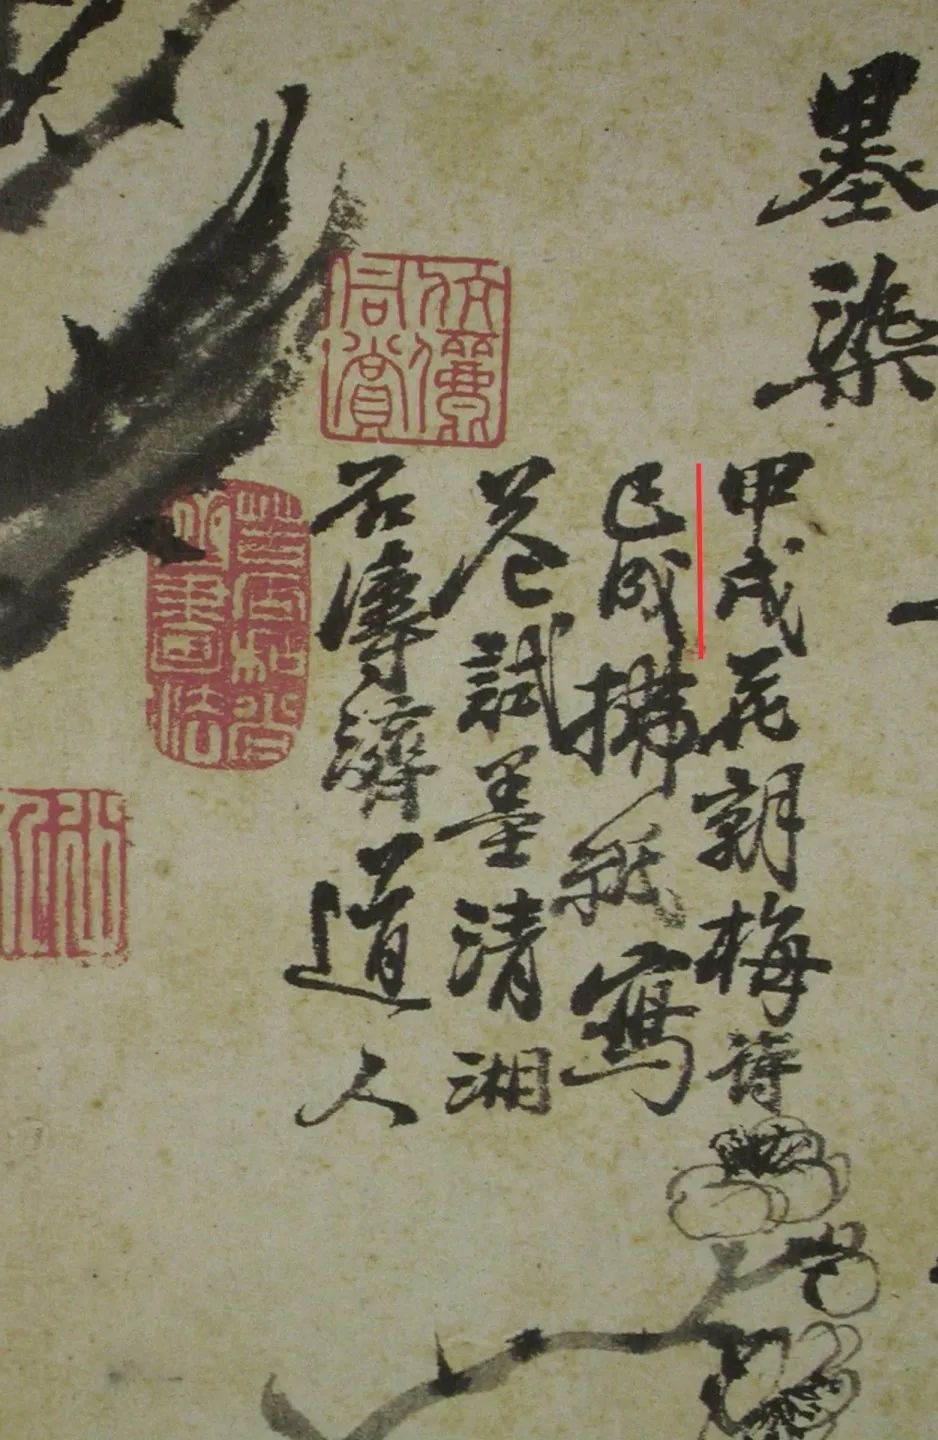 墨染
甲戌花朝梅詩
已成拂紙寫
卷試墨清湘
石濤濟道人
伉儷同賞